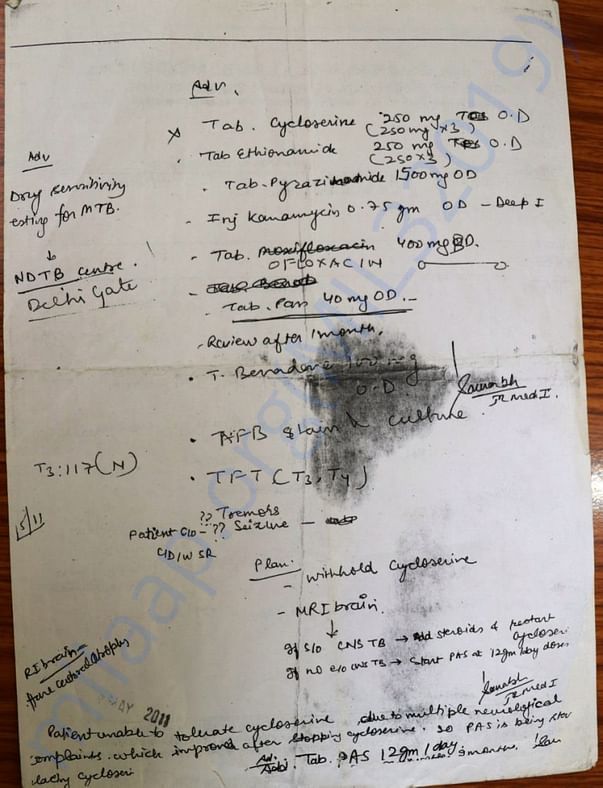 Adv.
x Tab. Cycloserine 250 mg O.D
(250 mg x3)
Tab Ethionamide 250 mg O.D
(250x3)
Tab. Pyrazinamide 1500 mg OD
Inj Kanamycin 0.75 gm OD - Deep I
Tab. Moxifloxacin 400 mg BD.
OFLOXACIN
Tab. Pan 40 mg OD.
Review after 1 month.
T. Benadone 100 mg
O.D.
Saurabh
JR Med I.
Adv
Drug sensitivity
esting for MTB.
↓
NDTB centre.
Delhi Gate
AFB stain & culture
TFT (T3, T4)
T3: 117 (N)
5/11
?? Tremors
Patient c/o - ?? Seizure -
C/D/W SR
Plan:
- withhold cycloserine
- MRI brain.
↓
If s/o CNS TB → Add steroids & restart
cycloseri
If no e/o CNS TB → Start PAS at 12gm/day doses
Saurabh
JR Med I
RI brain -
MAY 2011
Patient unable to tolerate cycloserine due to multiple neurological
omplaints which improved after stopping cycloserine. so PAS is being
cycloseri
Adv. Tab. PAS 12gm/day
3 months.
milaap.org
2019